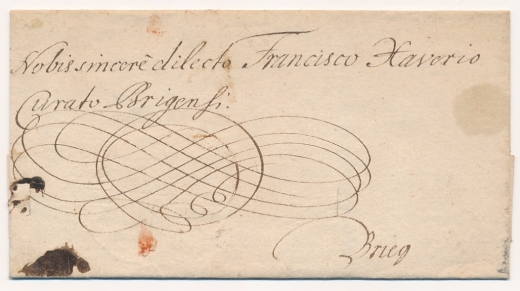 Nobis sincerè dilecto Francisco Xaverio
Curato Brigensi.
Brieg